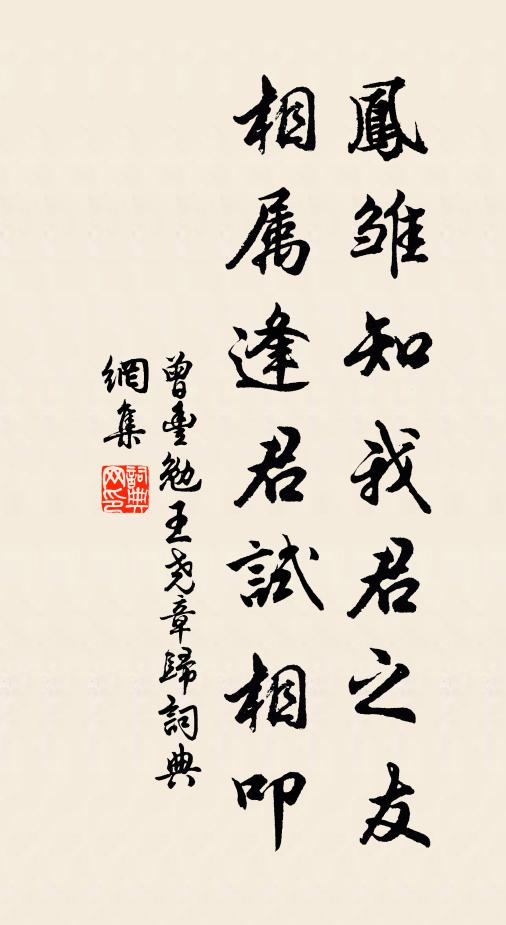 鳳雛知我君之友
相属逢君試相叩
曾豊勉王尧章歸詞典
網集
詞典網印